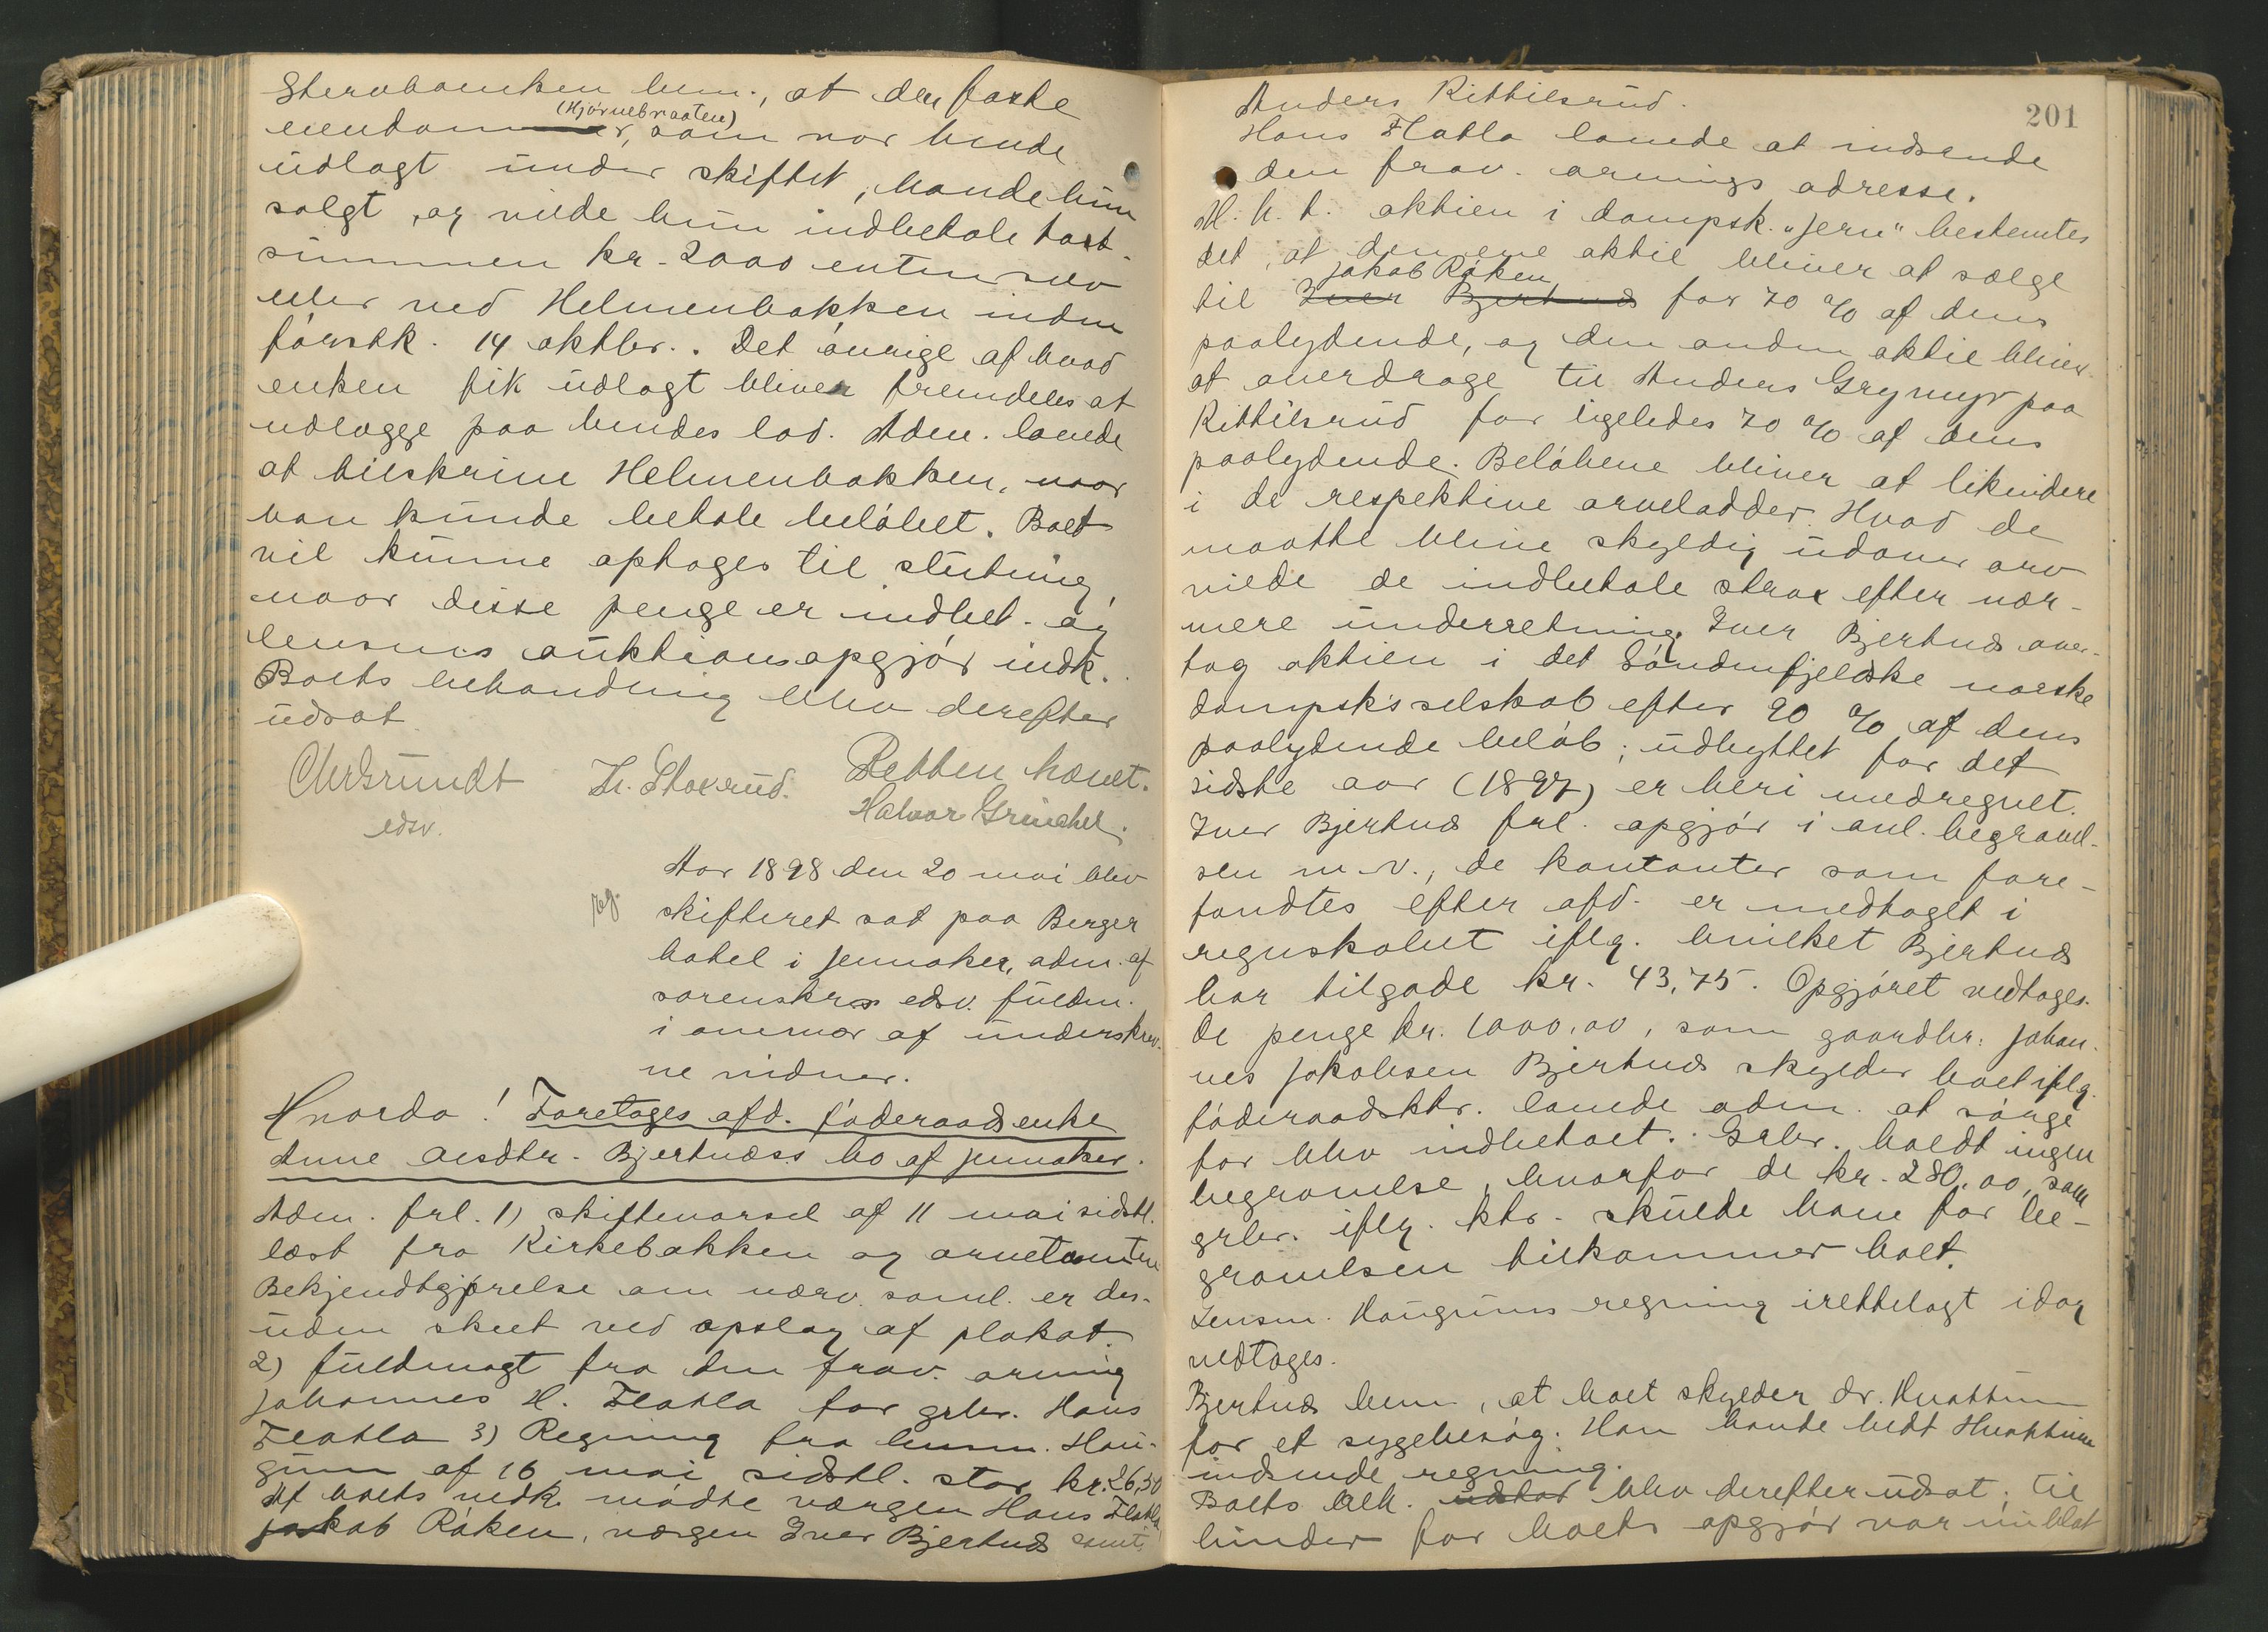 bem., at den faste
(Hjørnebraaten)
eiendommer, som var hende
udlagt under skiftet, havde hun
solgt, og vilde hun indbetale tast-
summen kr. 2000 enten selv
eller ved Helmenbakken inden
førstk. 14 oktbr.. Det øvrige af hvad
enken fik udlagt bliver fremdeles at
udlægge paa hendes lod. Adm. lovede
at tilskrive Helmenbakken, naar
han kunde betale beløbet. Boet
vil kunne optages til slutning,
naar disse penge er indbet. og
lensms auktionsopgjør indk.
Boets behandling blev derefter
udsat
Chr Grundt Kr. Stoxrud. Rebben hævet.
edsv. Halvor Grinaker.
Aar 1898 den 20 mai blev
rg. skifteret sat paa Berger
hotel i Jevnaker, adm. af
sorenskrs edsv. fuldm.
i overvær af underskrev-
ne vidner.
Hvorda! Foretages afd. føderaadsenke
Anne Olsdtr. Bjertnæss bo af Jevnaker.
Adm. frl. 1) skiftevarsel af 11 mai sidstl.
læst fra Kirkebakken og arvetomten
Bekjendtgjørelse om nærv. saml. er des-
uden skeet ved opslag af plakat.
2) fuldmagt fra den frav. arving
Johannes H. Flatla for grbr. Hans
Flatla 3) Regning fra lensm. Hau-
gum af 16 mai sidstl. stor kr. 26,50
Af boets vedk. mødte værgen Hans Flatla,
Jakob Røken, værgen Iver Bjertnæs samt
201
Anders Kittilsrud.
Hans Flatla lovede at indsende
den frav. arvings adresse.
M. h. t. aktien i dampsk. "Jern" bestemtes
det, at den ene aktie bliver at sælge
Jakob Røken
til Iver Bjertnæs for 70 % af dens
paalydende, og den anden aktie bliver
at overdrage til Anders Grymyr paa
Kittilsrud for ligeledes 70 % af dens
paalydende. Beløbene bliver at likvidere
i de respektive arvelodder. Hvad de
maatte blive skyldig udover arv
vilde de indbetale strax efter nær-
mere underretning. Iver Bjertnæs over-
tog aktien i det Søndenfjeldske norske
dampsk's selskab efter 90 % af dens
paalydende beløb; udbyttet for det
sidste aar (1897) er heri medregnet.
Iver Bjertnæs frl. opgjør i anl. begravel-
sen m. v., de kontanter som fore-
fandtes efter afd. er medtaget i
regnskabet iflg. hvilket Bjertnæs
har tilgode kr. 43,75. Opgjøret vedtages.
De penge kr. 1000,00, som gaardbr. Johan-
nes Jakobsen Bjertnæs skylder boet iflg.
føderaadsktr. lovede adm. at sørge
for blev indbetalt. Grbr. holdt ingen
begravelse, hvorfor de kr. 280,00, som
grbr. iflg. ktr. skulde have for be-
gravelsen tilkommer boet.
Lensm. Haugums regning irettelagt idag
vedtages.
Bjertnæs bem., at boet skylder dr. Hvattum
for et sygebesøg. Han havde bedt Hvattum
indsende regning.
Boets beh. udsat blev derefter udsat; til
hinder for boets opgjør var nu blot